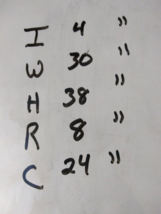 I 4 "
W 30 "
H 38 "
R 8 "
C 24 "